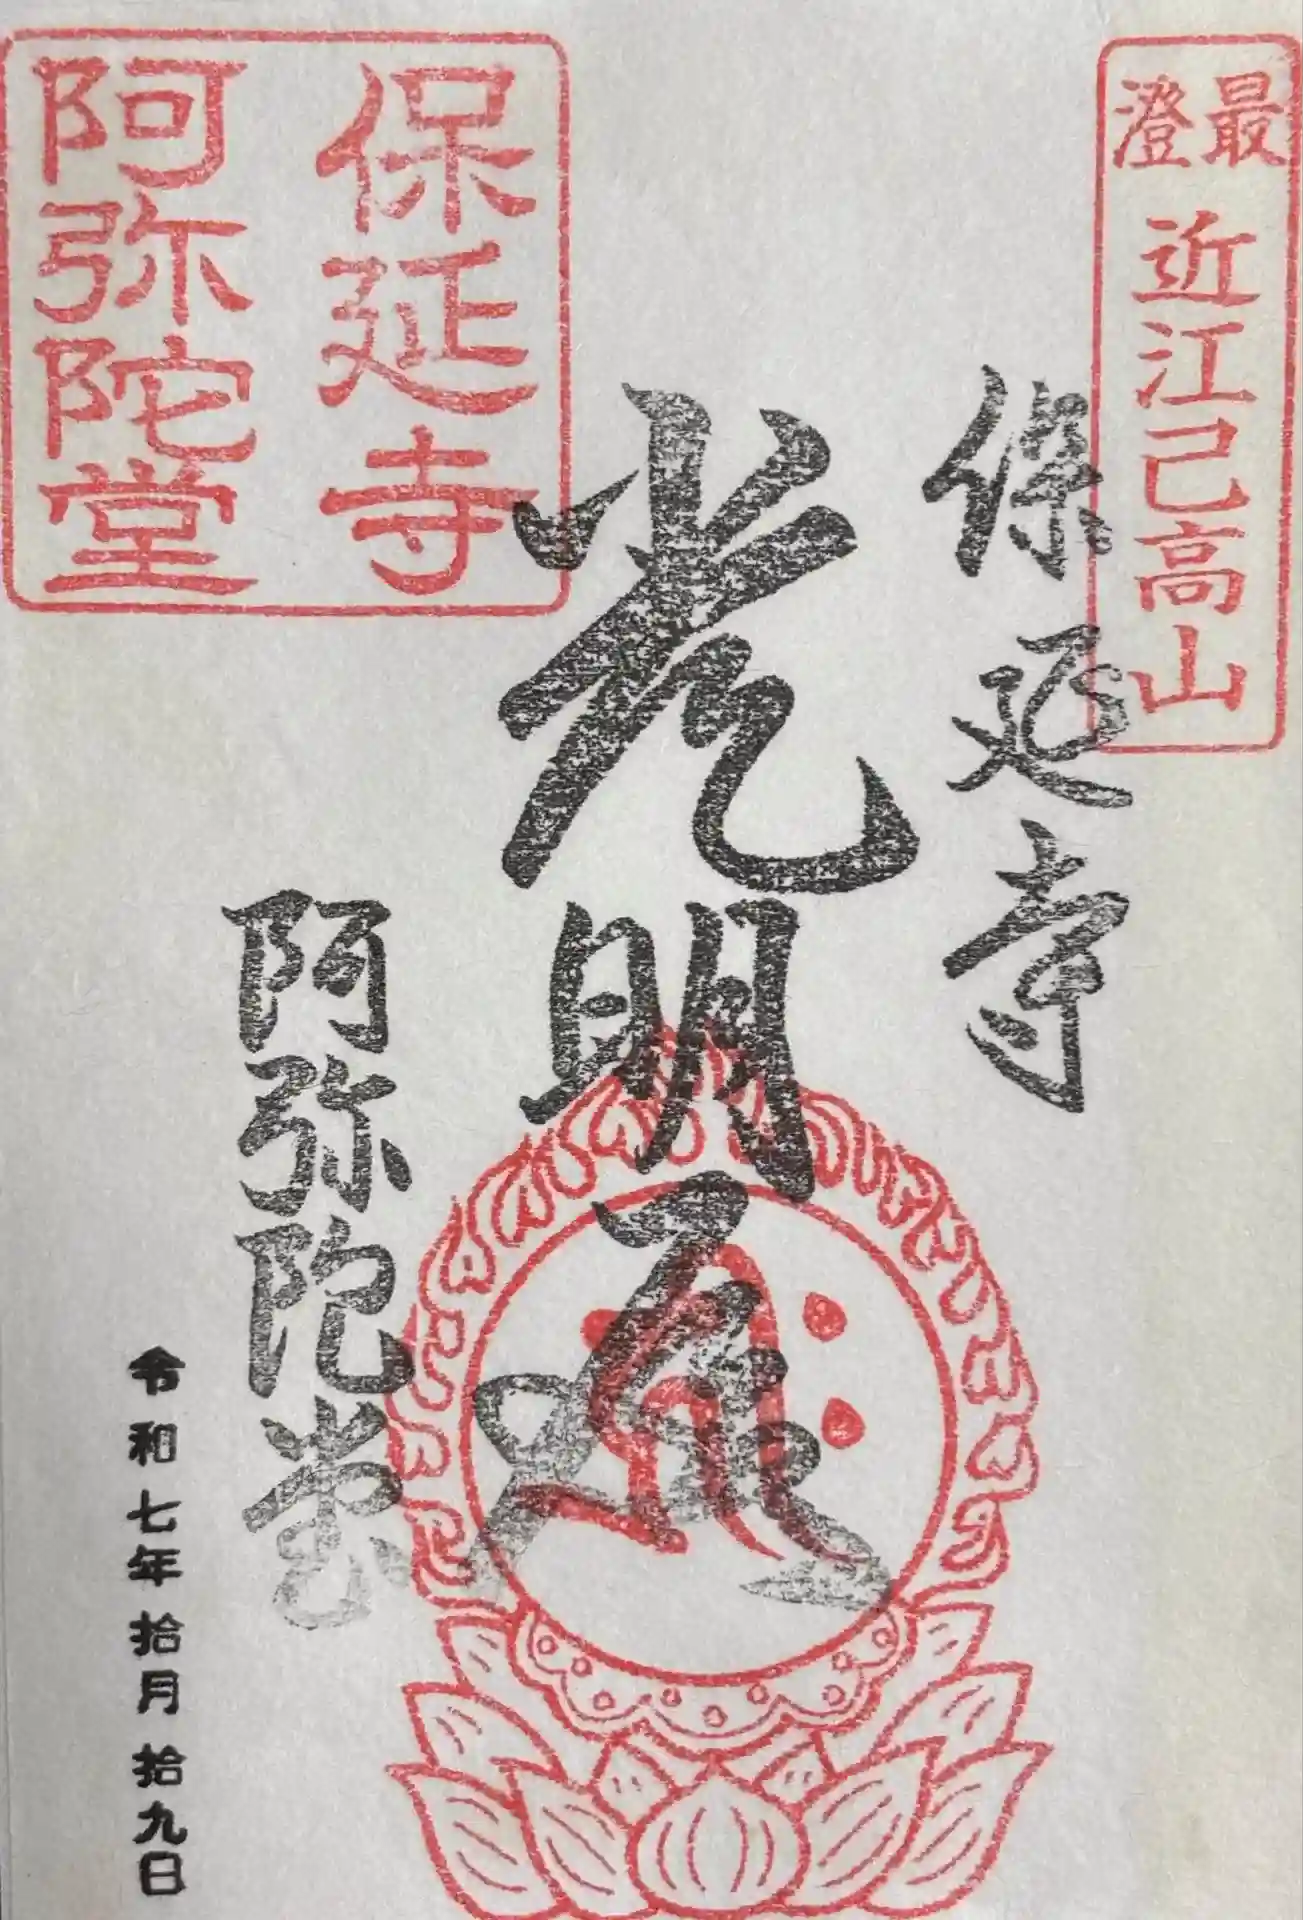 最澄
近江己高山
保延寺
光明遍
阿弥陀堂
保延寺
阿弥陀堂
令和七年拾月拾九日